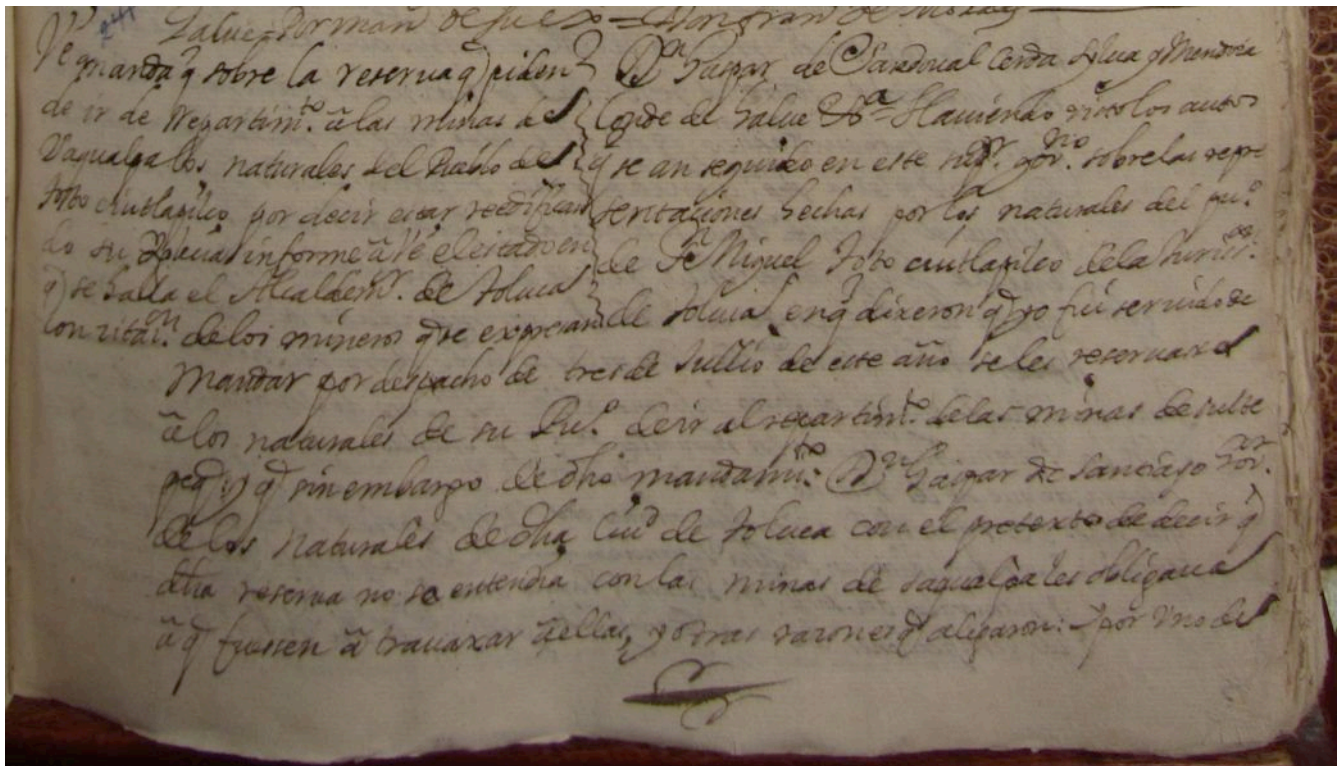 Salue = Por man.do de su ex.a = Don fran.co de Morales
241
Ve manda q sobre la reserua q piden
de ir de Repartim.to â las minas de
Saqualpa los naturales del Pueblo de S.
toto cuitlapilco por decir estar reedifican
do su Yglecia informe â Ve el estado en
q se halla el Alcalde m.r de Toluca
con zitaz.on de los mineros q se expresan
D.n Gaspar de Sandoual Cerda Silua y Mendoza
Conde de Galue &.a Hauiendo visto los autos
q se an seguido en este sup.r gou.no sobre las repre
sentaciones hechas por los naturales del pu.o
de S.n Miguel toto cuitlapilco de la Juris.on
de toluca en q dixeron q yo fui seruido de
Mandar por despacho de tres de Jullio de este año se les reseruase
â los naturales de su Pu.o de ir al repartim.to de las minas de sulte
peq; y q sin embargo de dho mandam.to D.n Gaspar de Santiago Gou.or
de los Naturales de dha Ciu.d de toluca con el pretexto de decir q
dha reserua no se entendia con las minas de saqualpa les obligaua
â q fuessen â trauaxar â ellas, y otras razones q alegaron: y por Vno de